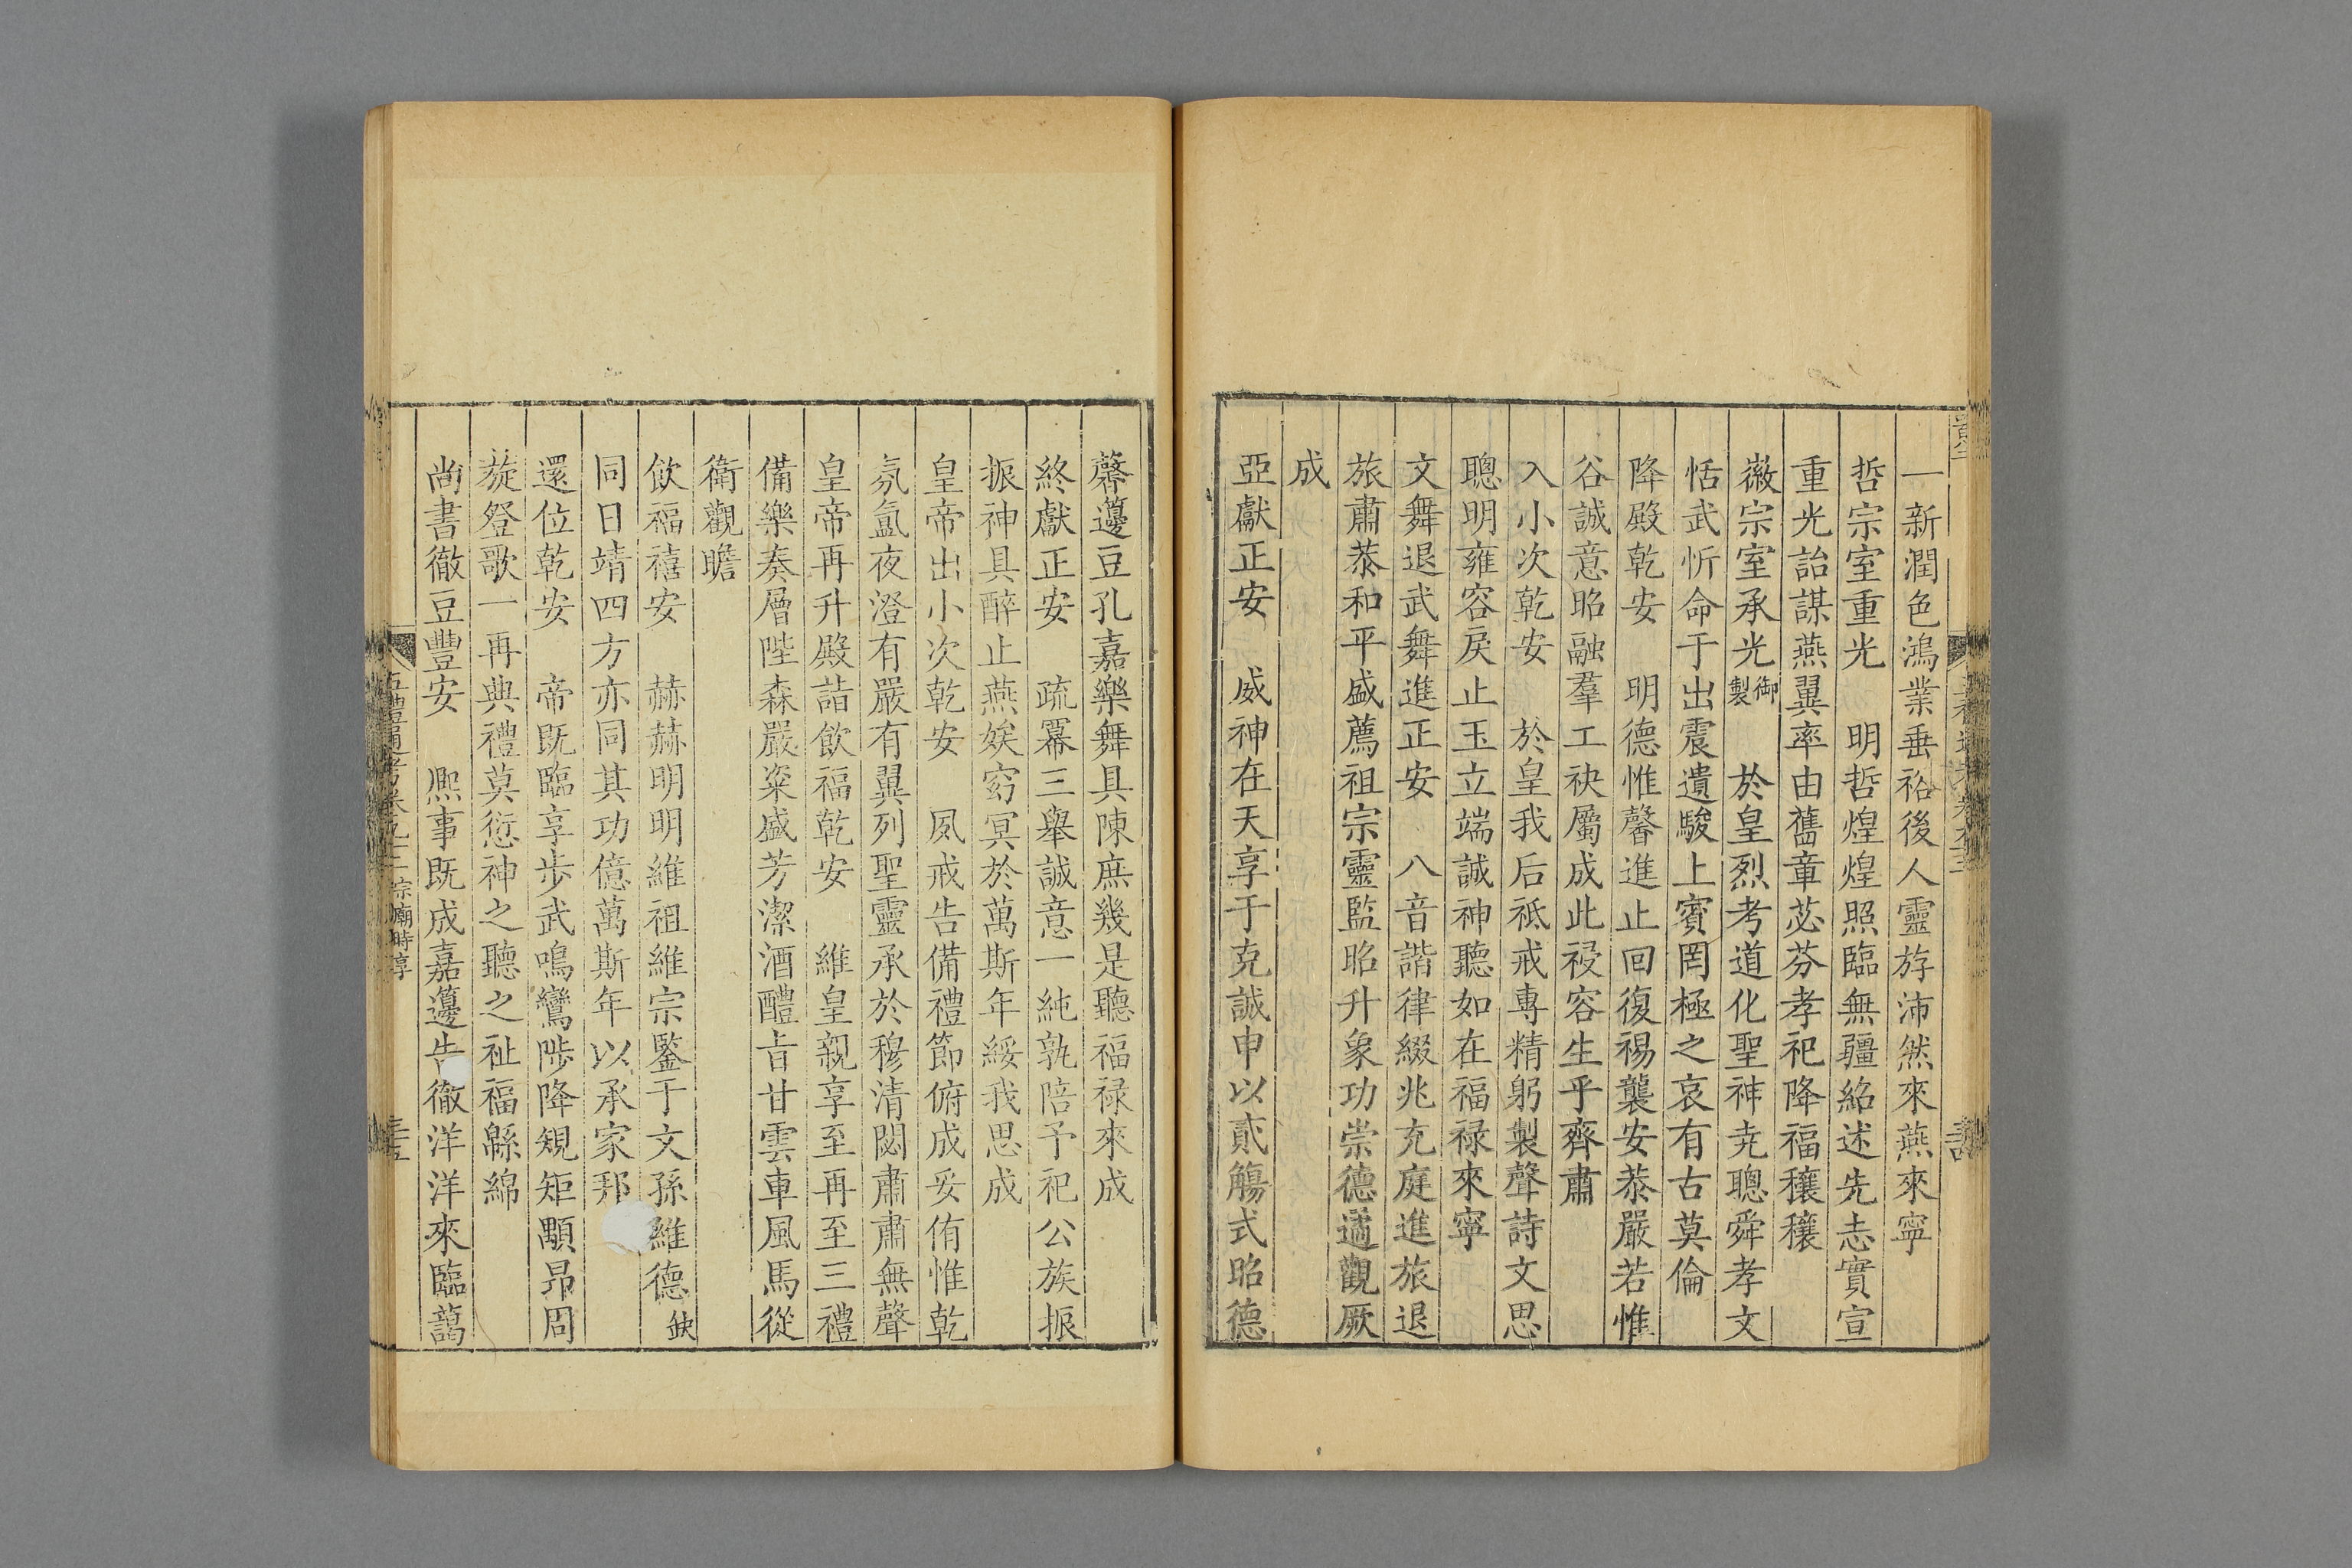 一新潤色鴻業垂裕後人靈斿沛然來燕來寧
哲宗室重光　明哲煌煌照臨無疆紹述先志實宣
重光詒謀燕翼率由舊章苾芬孝祀降福穰穰
徽宗室承光御製　於皇烈考道化聖神堯聰舜孝文
恬武忻命于出震遺駿上賓罔極之哀有古莫倫
降殿乾安　明德惟馨進止回復裼襲安恭嚴若惟
谷誠意昭融羣工袂屬成此祲容生乎齊肅
入小次乾安　於皇我后祗戒專精躬製聲詩文思
聰明雍容戾止玉立端誠神聽如在福祿來寧
文舞退武舞進正安　八音諧律綴兆充庭進旅退
旅肅恭和平盛薦祖宗靈監昭升象功崇德遹觀厥
成
亞獻正安　威神在天享于克誠申以貳觴式昭德
馨籩豆孔嘉樂舞具陳庶幾是聽福祿來成
終獻正安　疏冪三舉誠意一純孰陪予祀公族振
振神具醉止燕娭窈冥於萬斯年綏我思成
皇帝出小次乾安　夙戒告備禮節俯成妥侑惟乾
氛氳夜澄有嚴有翼列聖靈承於穆清閟肅肅無聲
皇帝再升殿詣飲福乾安　維皇親享至再至三禮
備樂奏層陛森嚴粢盛芳潔酒醴旨甘雲車風馬從
衛觀瞻
飲福禧安　赫赫明明維祖維宗鑒于文孫維德缺
同日靖四方亦同其功億萬斯年以承家邦
還位乾安　帝既臨享步武鳴鸞陟降規矩顒昻周
旋登歌一再典禮莫愆神之聽之祉福緜綿
尚書徹豆豐安　熈事既成嘉籩告徹洋洋來臨藹
五禮通考卷九十二宗廟時享